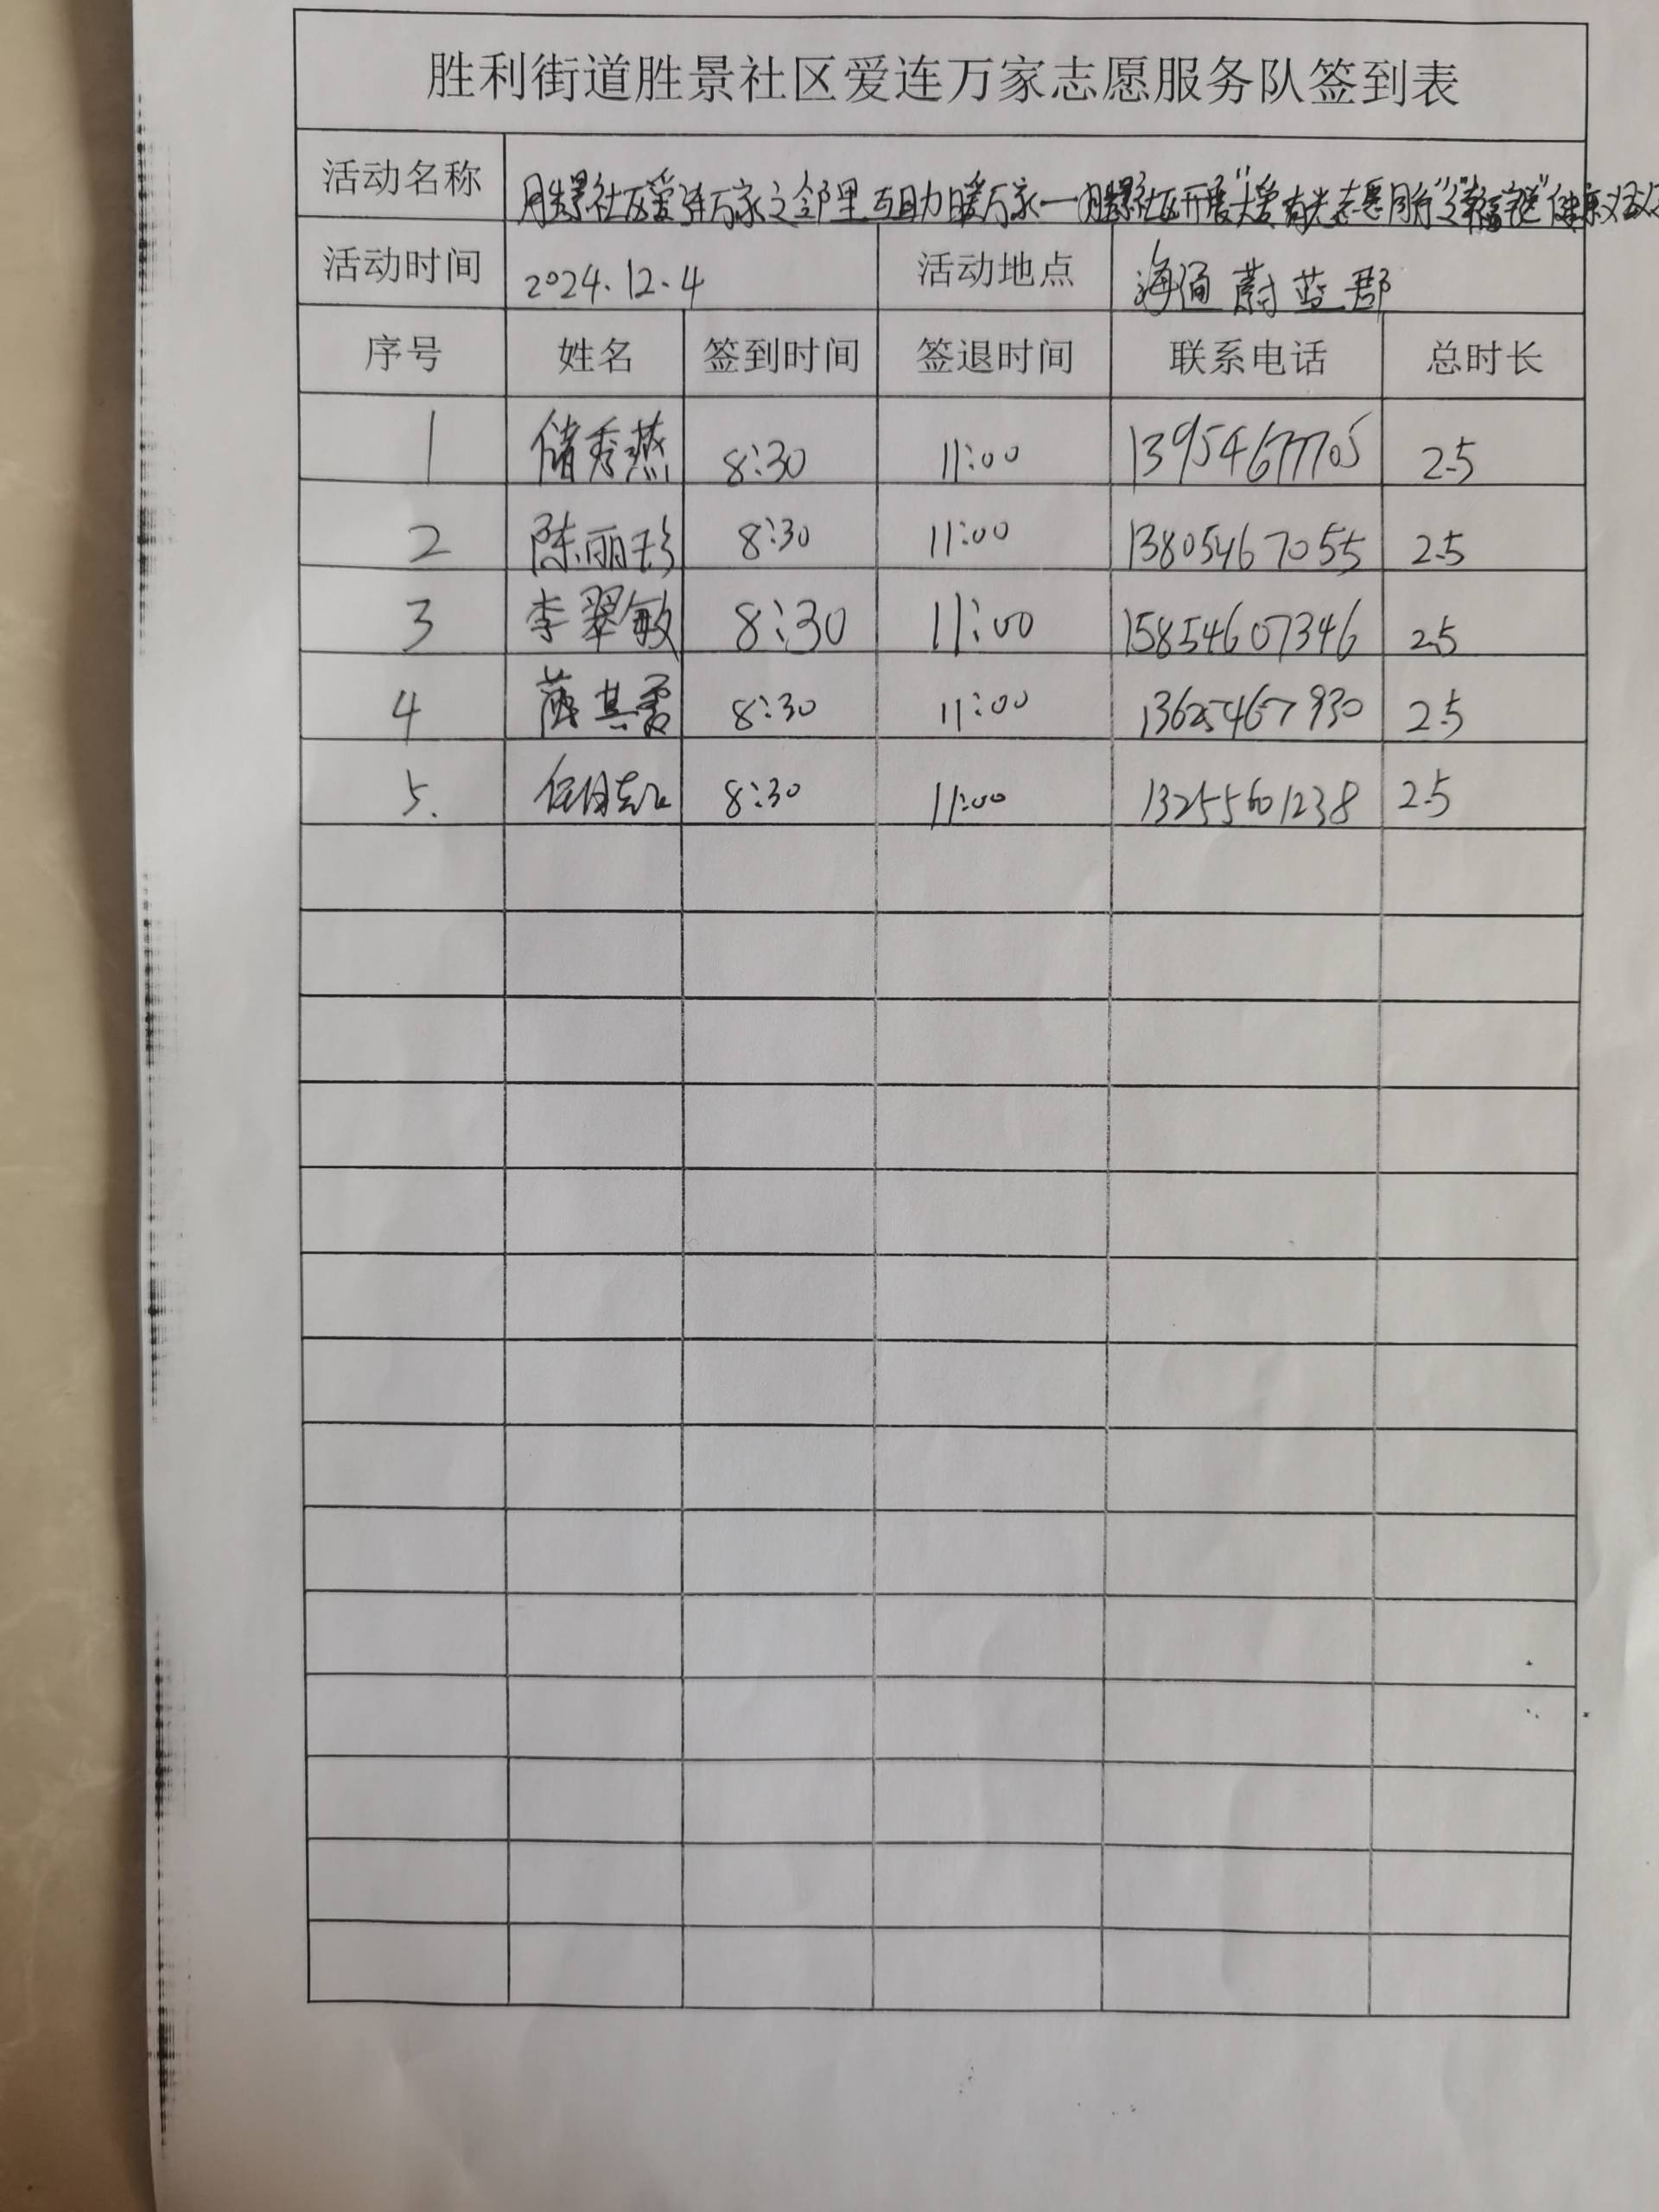 胜利街道胜景社区爱连万家志愿服务队签到表
活动名称 胜景社区爱连万家之邻里互助暖万家—胜景社区开展"大爱有光志愿同行"之"幸福家庭"健康义诊
活动时间 2024.12.4 活动地点 海通蔚蓝郡
序号 姓名 签到时间 签退时间 联系电话 总时长
1 储秀燕 8:30 11:00 13954677705 2.5
2 陈丽珍 8:30 11:00 13805467055 2.5
3 李翠敏 8:30 11:00 15854607346 2.5
4 8:30 11:00 13625467930 2.5
5. 8:30 11:00 13255601238 2.5